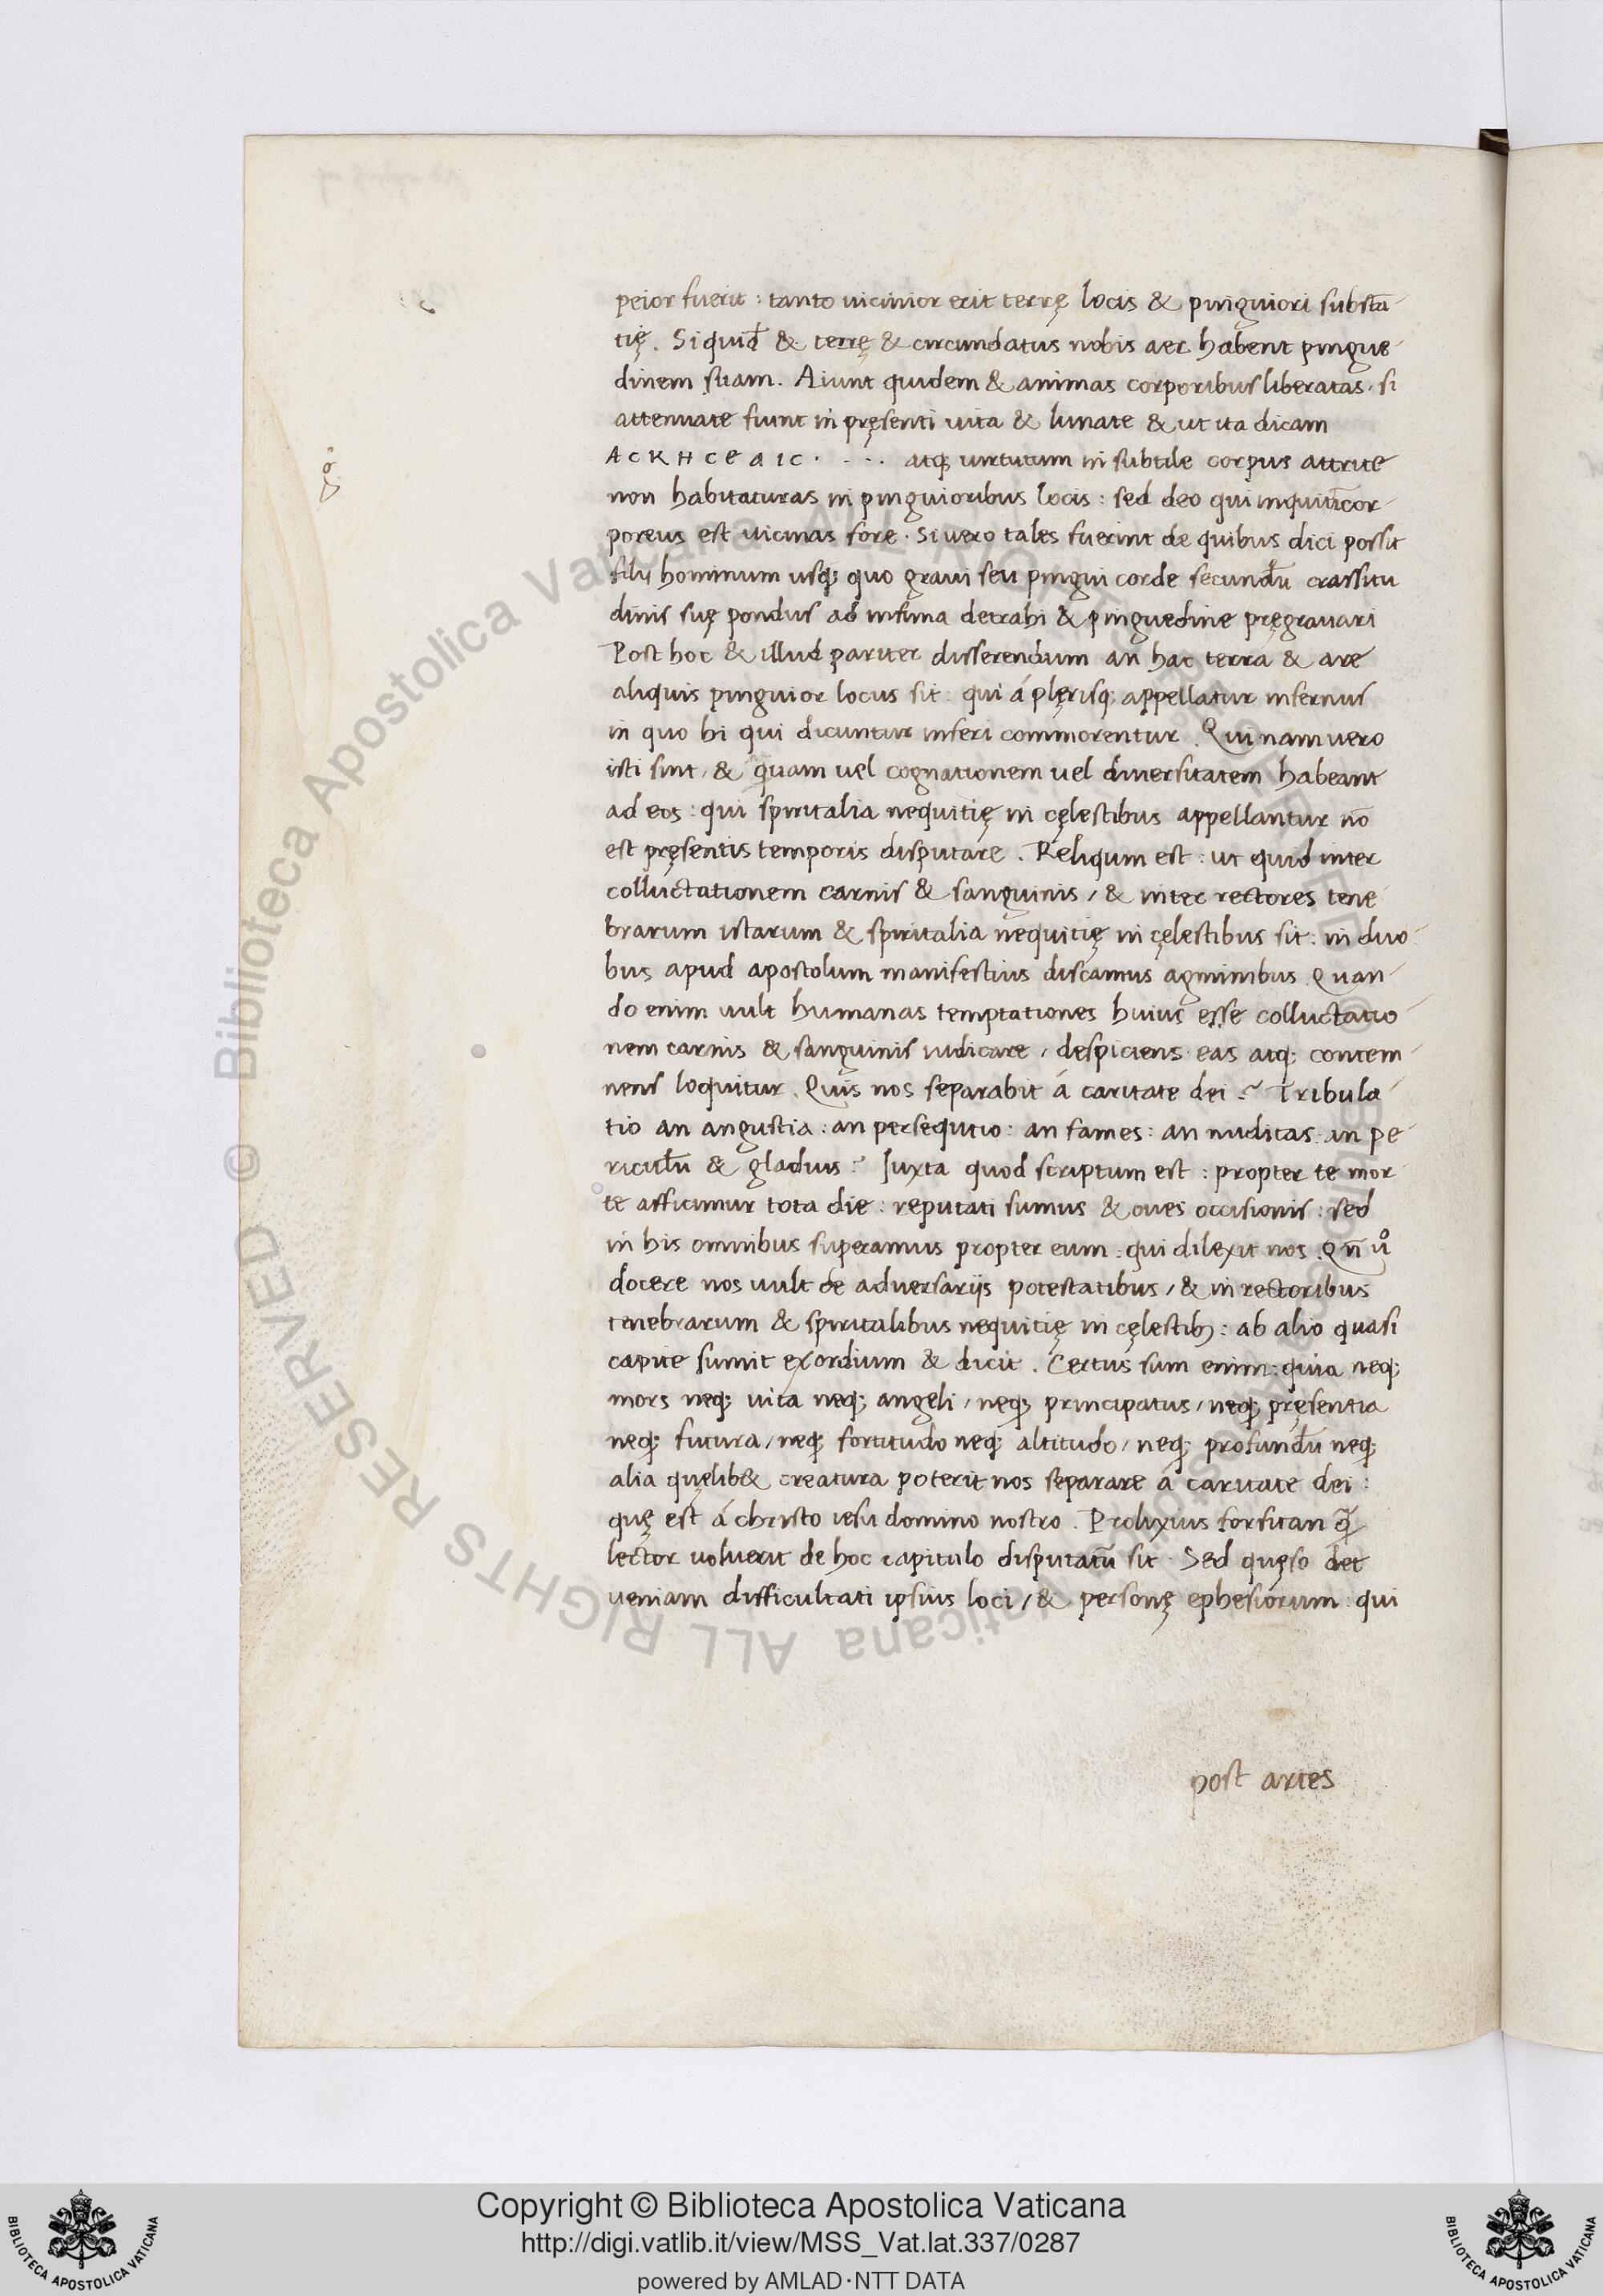 peior fuerit : tanto uicinior erit terrę locis & pinguiori substā
tię . Siquid̄ & terrę & circundatus nobis aer habent pingue
dinem suam . Aiunt quidem & animas corporibus liberatas / si
attenuate fiunt in pręsenti uita & lunate & ut ita dicam
ΑϹΚΗϹΕΑΙϹ · · · · atq; uirtutum in subtile corpus attrite
non habitaturas in pinguioribus locis : sed deo qui inquit īcor
poreus est uicinas fore . Si uero tales fuerint de quibus dici possit
filij hominum usq; quo graui seu pingui corde secundū crassitu
dinis suę pondus ad infima detrahi & pinguedine pręgrauari
Post hoc & illud pariter disserendum an hac terra & are
aliquis pinguior locus sit : qui á plęrisq; appellatur infernus
in quo hi qui dicuntur inferi commorentur . Qui nam uero
isti sint / & quam uel cognationem uel diuersitatem habeant
ad eos : qui spiritalia nequitię in cęlestibus appellantur nō
est pręsentis temporis disputare . Reliqum est : ut quid inter
colluctationem carnis & sanguinis / & inter rectores tene
brarum istarum & spiritalia nequitię in cęlestibus sit : in duo
bus apud apostolum manifestius discamus agminibus . Quan
do enim uult humanas temptationes huius esse colluctatio
nem carnis & sanguinis iudicare / despiciens eas atq; contem
nens loquitur . Quis nos separabit á caritate dei ? Tribula
tio an angustia : an persequtio : an fames : an nuditas : an pe
riculū & gladius ? Juxta quod scriptum est : propter te mor
te afficimur tota die : reputati sumus & oues occisionis : sed
in his omnibus superamus propter eum : qui dilexit nos . Qn̄ uͦ
docere nos uult de aduersarijs potestatibus / & in rectoribus
tenebrarum & spiritalibus nequitię in cęlestib; : ab alio quasi
capite sumit exordium & dicit . Certus sum enim : quia neq;
mors neq; uita neq; angeli / neq; principatus / neq; pręsentia
neq; futura / neq; fortitudo neq; altitudo / neq; profundū neq;
alia quęlib& creatura poterit nos separare á caritate dei :
quę est á christo iesu domino nostro . Prolixius forsitan q̄
lector uoluerit de hoc capitulo disputatū sit . Sed quęso det
ueniam difficultati ipsius loci / & personę ephesiorum : qui
post artes
© Biblioteca Apostolica Vaticana ALL RIGHTS RESERVED
Copyright © Biblioteca Apostolica Vaticana
http://digi.vatlib.it/view/MSS_Vat.lat.337/0287
powered by AMLAD·NTT DATA
BIBLIOTECA APOSTOLICA VATICANA
BIBLIOTECA APOSTOLICA VATICANA